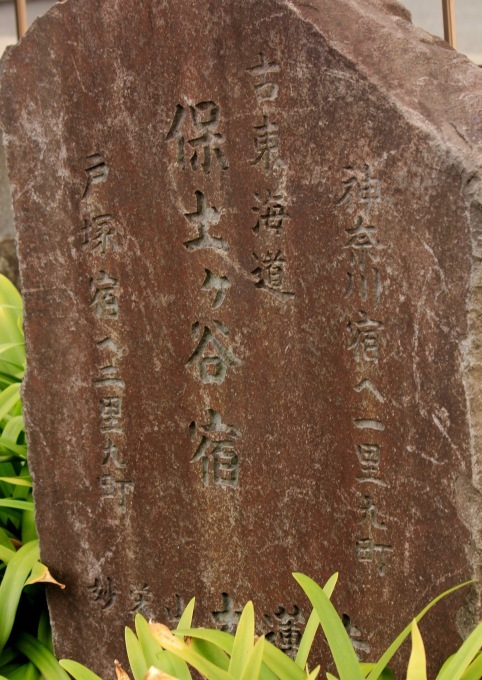 神奈川宿へ一里九町
古東海道
保土ヶ谷宿
戸塚宿へ二里九町
妙 山
蓮